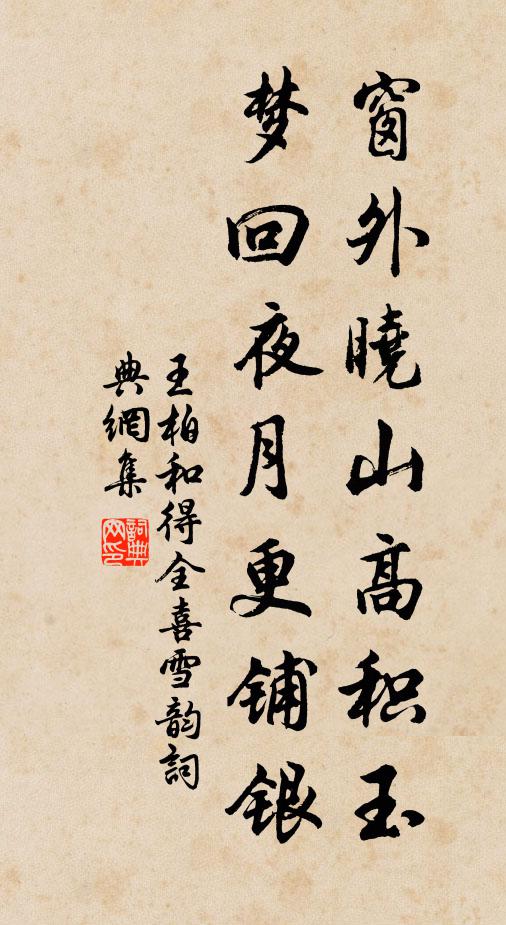 窗外曉山高积玉
梦回夜月更铺銀
王柏和得全喜雪韵詞
典網集
詞典网印